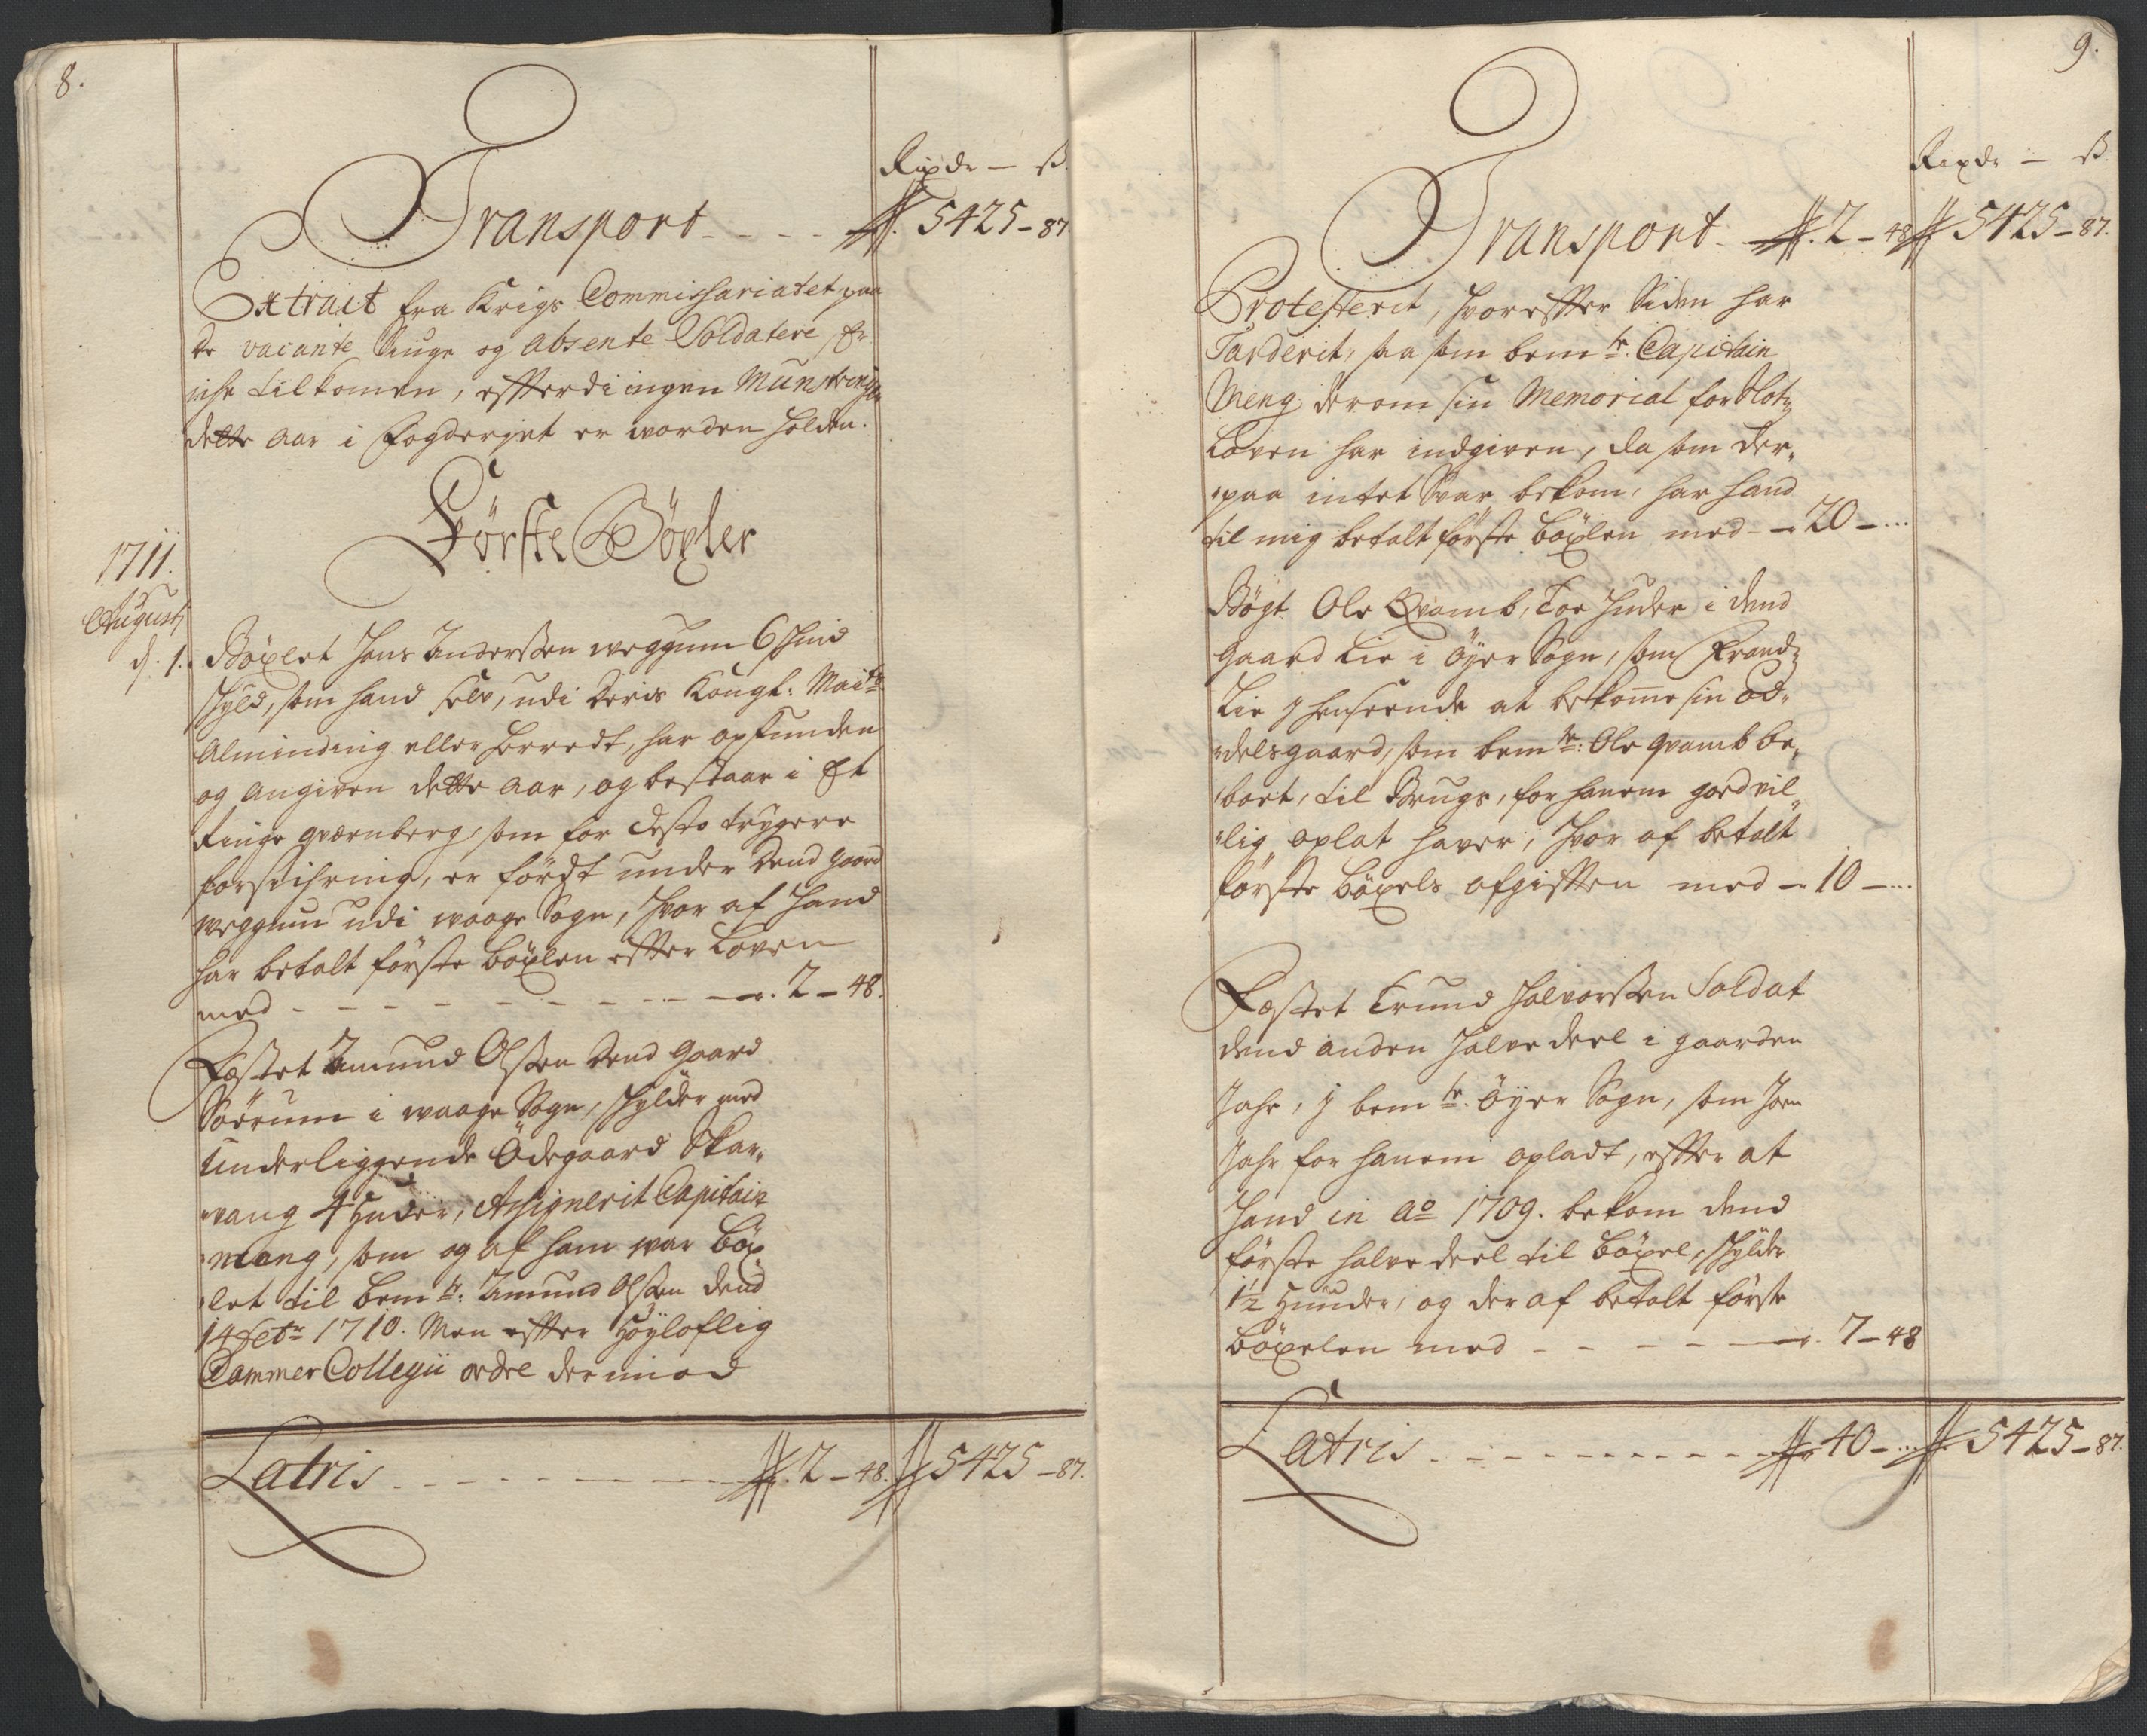 8.
Rixdr — ß.
Transport - - - - 5425 - 87.
Extract fra Krigs Commissariatet paa
de vacante Nuge og absente Soldater, er
iche tilkomen, efterdi ingen Munstringer
dette aar i Fogderiet er worden holden.
Förste Böxler
1711.
Augustj
d. 1. Böxlet Hans Anderssen weggum 6 Skind
skyld, som hand selv, udi Deris Kongl: Maits
Alminding eller herredt, har opfunden
og angiven dette aar, og bestaar i Et
ringe qværnberg, som for desto trygere
forsichring, er fördt under dend gaard
weggum udi waage Sogn, hvor af hand
har betalt förste böxlen efter Loven
med - - - - - - - - - 2 - 48.
Fæstet Amund Olssen dend gaard
Sörum i waage Sogn, skylder med
underliggende Ödegaard Skar-
wang 4 Huder, Assignerit Capitain
Meng, som og af ham war böx-
let til bemte: Amund Olssen dend
14 1710. Men efter Höyloflig
Cammer Collegii ordre derimod
Latris - - - - - - - 2 - 48. 5425 - 87.
9.
Rixdr — ß.
Transport - 2 - 48 5425 - 87.
Protesterit, hvorefter siden har
Tarderit, saa som bemte. Capitain
Meng derom sin Memorial for Slotz
Loven har indgiven, da som der-
paa intet Svar bekom, har hand
til mig betalt förste böxlen med - 20 - ...
Bögt Ole Qvamb, Toe Huder i dend
gaard Lie i Öyer Sogn, som Frandz
Lie j henseende at bekome sin od-
delsgaard, som bemte: Ole qvamb be-
boet, til Brugs, for hanem goed vil-
lig oplat haver, hvor af betalt
förste böxels afgiften med - 10 - ...
Fæstet Trund Halvorssen Soldat
dend anden halve deel i gaarden
Jahr, j bemte Öyer Sogn, som Joen
Jahr for hanem opladt, efter at
hand in ao 1709. bekom dend
förste halve deel til böxel, skylder
1½ Huuder, og deraf betalt förste
böxelen med - - - - - 7 - 48
Latris - - - - - - - - - 40 - ... 5425 - 87.